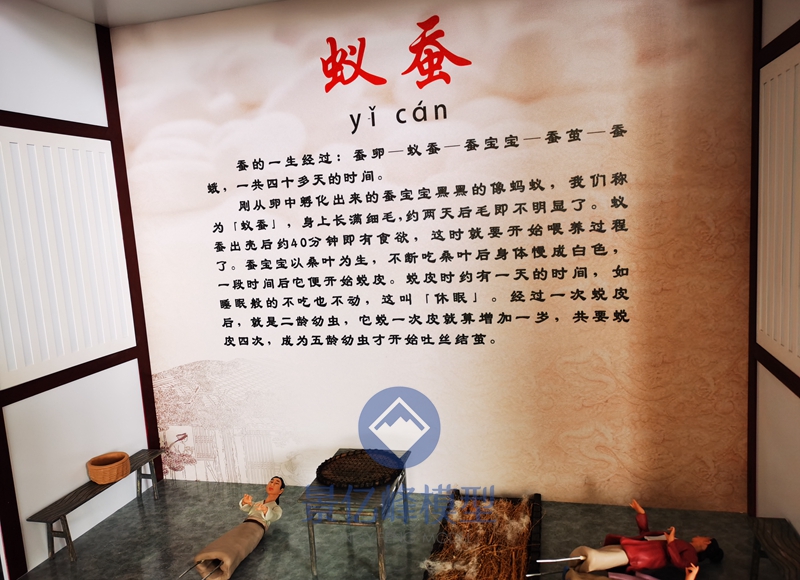 蚁蚕
yǐ cán
蚕的一生经过：蚕卵—蚁蚕—蚕宝宝—蚕茧—蚕
蛾，一共四十多天的时间。
刚从卵中孵化出来的蚕宝宝黑黑的像蚂蚁，我们称
为「蚁蚕」，身上长满细毛，约两天后毛即不明显了。蚁
蚕出壳后约40分钟即有食欲，这时就要开始喂养过程
了。蚕宝宝以桑叶为生，不断吃桑叶后身体慢成白色，
一段时间后它便开始蜕皮。蜕皮时约有一天的时间，如
睡眠般的不吃也不动，这叫「休眠」。经过一次蜕皮
后，就是二龄幼虫，它蜕一次皮就算增加一岁，共要蜕
皮四次，成为五龄幼虫才开始吐丝结茧。
亿峰模型